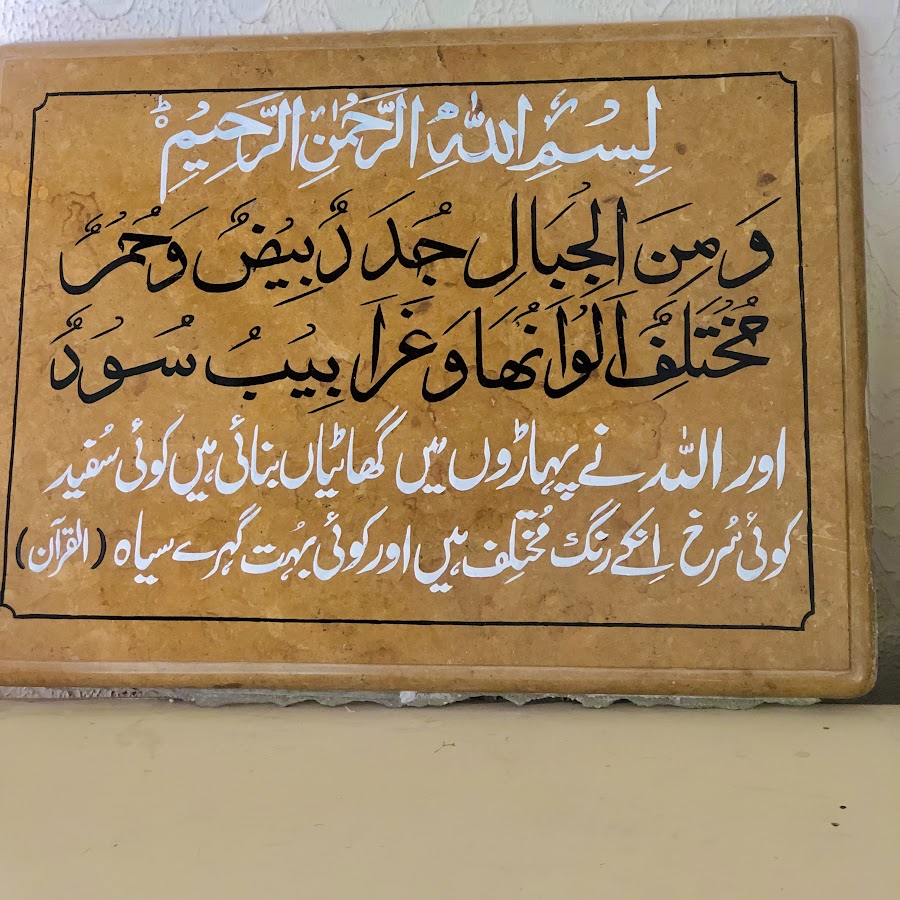 بِسْمِ اللّٰهِ الرَّحْمٰنِ الرَّحِيْمِ ؕ
وَ مِنَ الْجِبَالِ جُدَدٌ بِيْضٌ وَّحُمْرٌ
مُّخْتَلِفٌ اَلْوَانُهَا وَ غَرَابِيْبُ سُوْدٌ
اور اللہ نے پہاڑوں میں گھاٹیاں بنائی ہیں کوئی سُفید
کوئی سُرخ اِنکے رنگ مُختلِف ہیں اور کوئی بہُت گہرے سیاہ (القرآن)